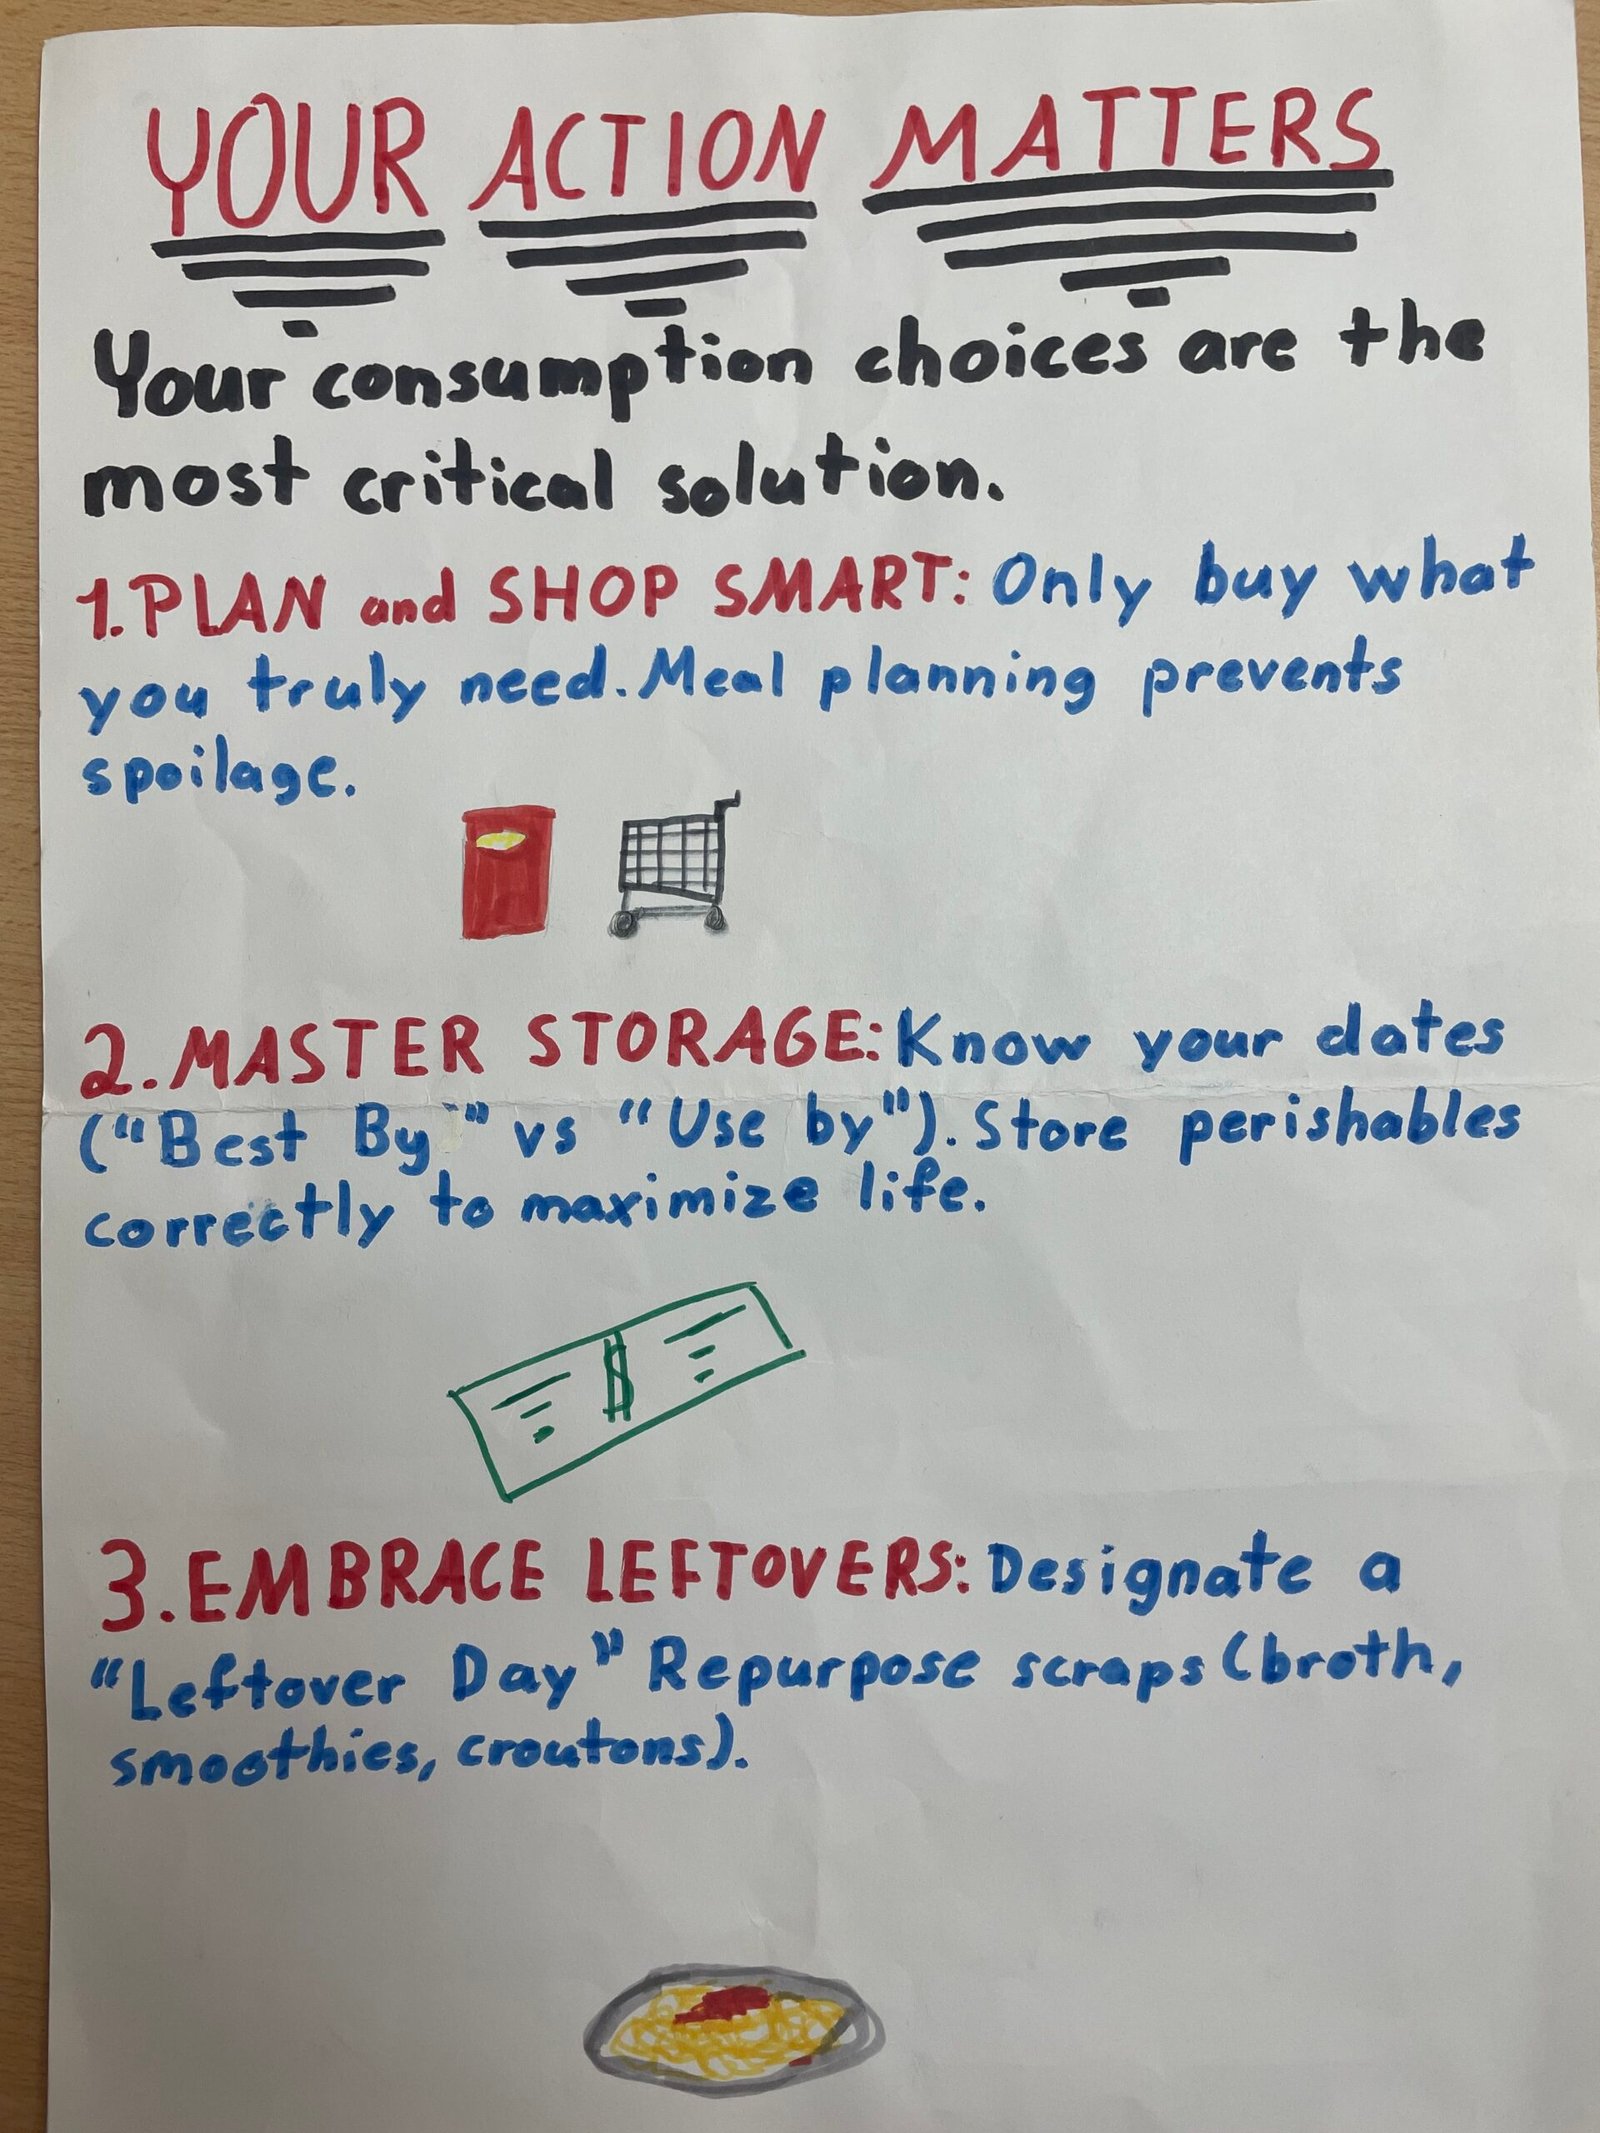 YOUR ACTION MATTERS
Your consumption choices are the
most critical solution.
1. PLAN and SHOP SMART: Only buy what
you truly need. Meal planning prevents
spoilage.
2. MASTER STORAGE: Know your dates
("Best By" vs "Use by"). Store perishables
correctly to maximize life.
$
3. EMBRACE LEFTOVERS: Designate a
"Leftover Day" Repurpose scraps (broth,
smoothies, croutons).